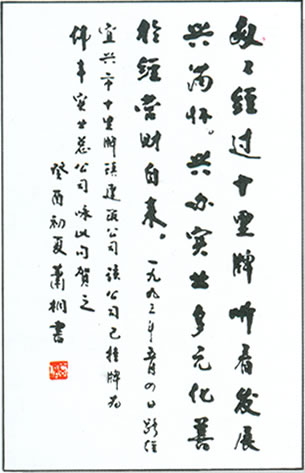 經过十里牌听看發展
兴满怀。兴办实业多元化善
於經营财自来。一九九三年五月四日路經
宜兴市十里牌镇建设公司该公司已挂牌为
伟丰实业总公司咏此句贺之
癸酉初夏 萧桐书